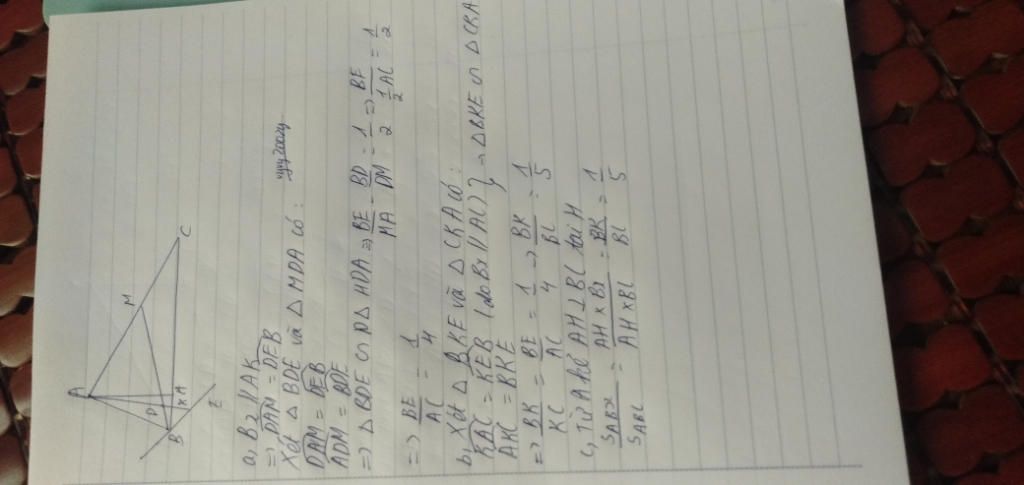 A
M
D
B
K
H
C
E
a, Bx // AK
=> DAM = DEB
Xét △ BDE và △ MDA có :
DAM = DEB
ADM = BDE
=> △ BDE ∽ △ MDA => BE/MA = BD/DM = 1/2 => BE/½AC = 1/2
=> BE/AC = 1/4
b, Xét △ BKE và △ CKA có :
KAC = KEB (do Bx // AC) } => △ BKE ∽ △ CKA
AKC = BKE
=> BK/KC = BE/AC = 1/4 => BK/BC = 1/5
c, Từ A kẻ AH ⊥ BC tại H
S ABK / S ABC = AH x BK / AH x BC = BK/BC = 1/5